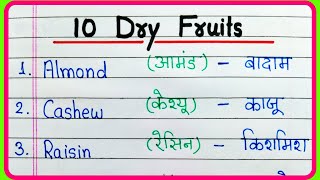 10 Dry Fruits
1. Almond (आमंड) - बादाम
2. Cashew (केश्यू) - काजू
3. Raisin (रेसिन) - किशमिश